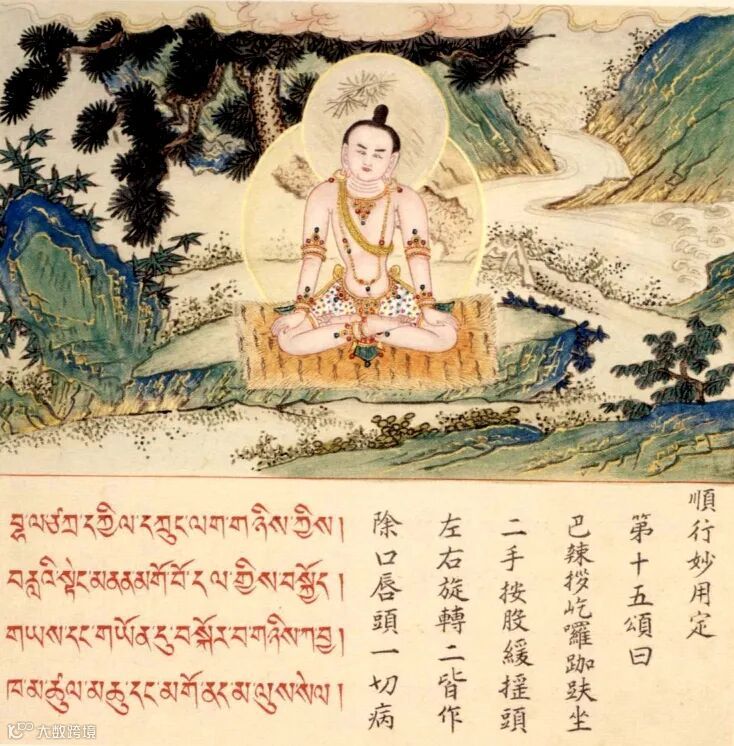 順行妙用定
第十五頌曰
巴辣拶屹囉跏趺坐
二手按股緩揺頭
左右旋轉二皆作
除口唇頭一切病
བྷ་ལ་ཙཀྲ་དཀྱིལ་དཀྲུང་ལག་གཉིས་ཀྱིས།
བརླའི་སྟེང་མནན་མགོ་བོ་དལ་གྱིས་བསྐྱོད།
གཡས་དང་གཡོན་དུ་བསྐོར་བ་གཉིས་ཀ་བྱ།
མཆུ་དང་མགོ་ནད་མ་ལུས་སེལ།
大数跨境